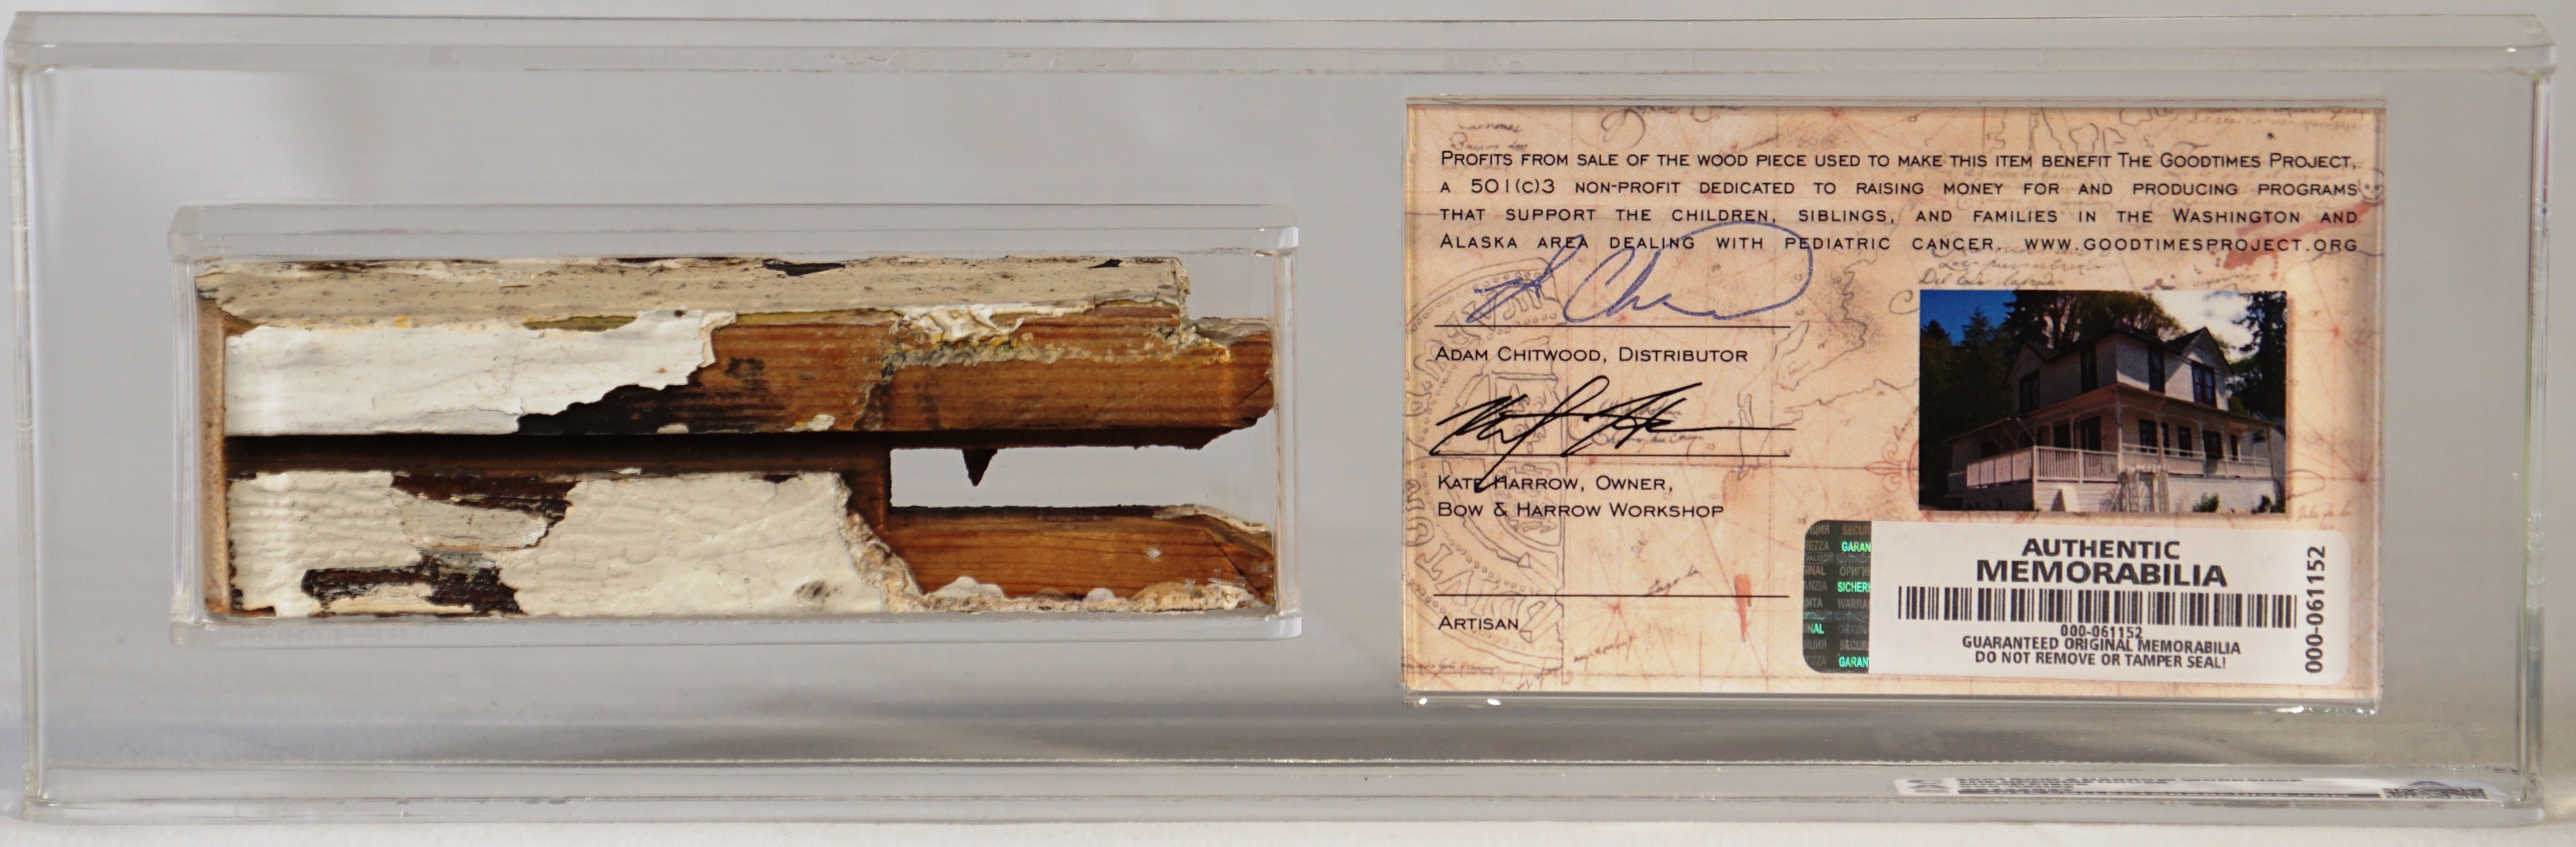 PROFITS FROM SALE OF THE WOOD PIECE USED TO MAKE THIS ITEM BENEFIT THE GOODTIMES PROJECT,
A 501(C)3 NON-PROFIT DEDICATED TO RAISING MONEY FOR AND PRODUCING PROGRAMS
THAT SUPPORT THE CHILDREN, SIBLINGS, AND FAMILIES IN THE WASHINGTON AND
ALASKA AREA DEALING WITH PEDIATRIC CANCER. WWW.GOODTIMESPROJECT.ORG
ADAM CHITWOOD, DISTRIBUTOR
KATE HARROW, OWNER,
BOW & HARROW WORKSHOP
ARTISAN
AUTHENTIC
MEMORABILIA
000-061152
GUARANTEED ORIGINAL MEMORABILIA
DO NOT REMOVE OR TAMPER SEAL!
000-061152
GARAN
SICHER
WARRA
NAL
GARAN